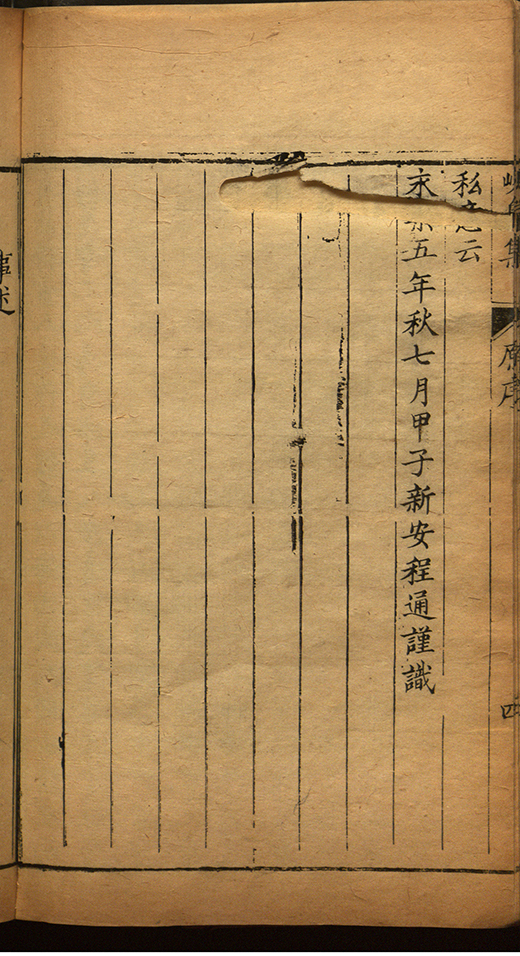 峴泉集 原序 四
私云
永樂五年秋七月甲子新安程通謹識
事述